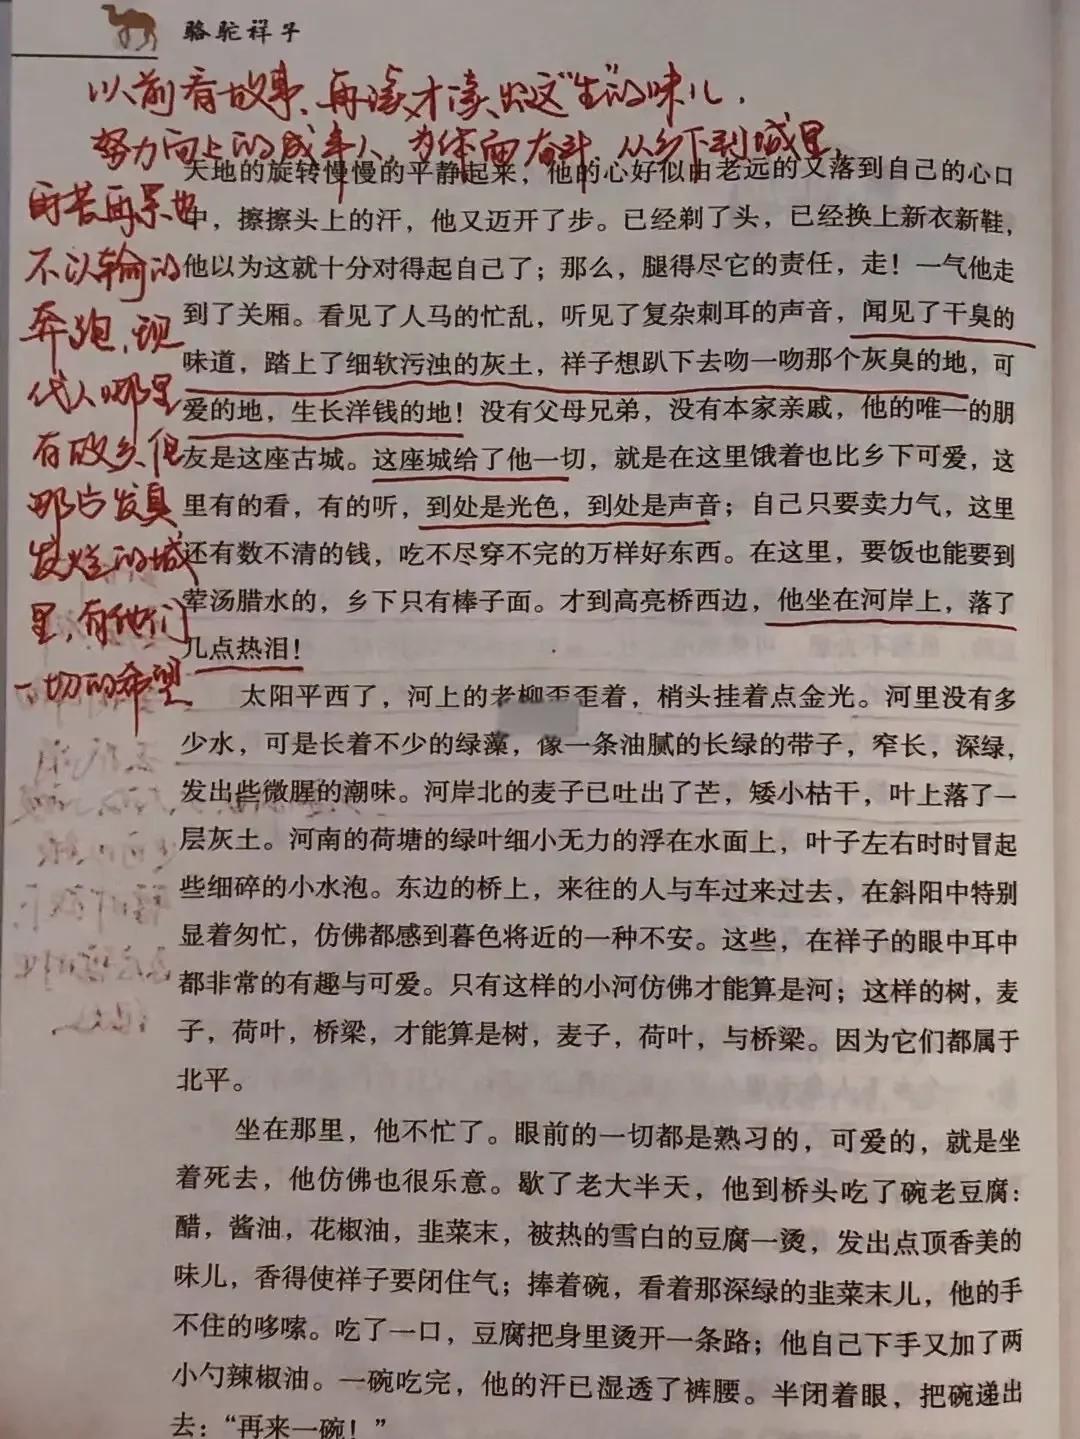 骆驼祥子
以前看故事、再读才读出这“生”的味儿，
努力向上的成年人，为你而奋斗，从乡下到城里，
再苦再累也
不认输的
奔跑，现
代人哪里
有故乡，但
那古发臭
发烂的城
里，有他们
一切的希望
天地的旋转慢慢的平静起来，他的心好似由老远的又落到自己的心口
中，擦擦头上的汗，他又迈开了步。已经剃了头，已经换上新衣新鞋，
他以为这就十分对得起自己了；那么，腿得尽它的责任，走！一气他走
到了关厢。看见了人马的忙乱，听见了复杂刺耳的声音，闻见了干臭的
味道，踏上了细软污浊的灰土，祥子想趴下去吻一吻那个灰臭的地，可
爱的地，生长洋钱的地！没有父母兄弟，没有本家亲戚，他的唯一的朋
友是这座古城。这座城给了他一切，就是在这里饿着也比乡下可爱，这
里有的看，有的听，到处是光色，到处是声音；自己只要卖力气，这里
还有数不清的钱，吃不尽穿不完的万样好东西。在这里，要饭也能要到
荤汤腊水的，乡下只有棒子面。才到高亮桥西边，他坐在河岸上，落了
几点热泪！
太阳平西了，河上的老柳歪歪着，梢头挂着点金光。河里没有多
少水，可是长着不少的绿藻，像一条油腻的长绿的带子，窄长，深绿，
发出些微腥的潮味。河岸北的麦子已吐出了芒，矮小枯干，叶上落了一
层灰土。河南的荷塘的绿叶细小无力的浮在水面上，叶子左右时时冒起
些细碎的小水泡。东边的桥上，来往的人与车过来过去，在斜阳中特别
显着匆忙，仿佛都感到暮色将近的一种不安。这些，在祥子的眼中耳中
都非常的有趣与可爱。只有这样的小河仿佛才能算是河；这样的树，麦
子，荷叶，桥梁，才能算是树，麦子，荷叶，与桥梁。因为它们都属于
北平。
坐在那里，他不忙了。眼前的一切都是熟习的，可爱的，就是坐
着死去，他仿佛也很乐意。歇了老大半天，他到桥头吃了碗老豆腐：
醋，酱油，花椒油，韭菜末，被热的雪白的豆腐一烫，发出点顶香美的
味儿，香得使祥子要闭住气；捧着碗，看着那深绿的韭菜末儿，他的手
不住的哆嗦。吃了一口，豆腐把身里烫开一条路；他自己下手又加了两
小勺辣椒油。一碗吃完，他的汗已湿透了裤腰。半闭着眼，把碗递出
去：“再来一碗！”